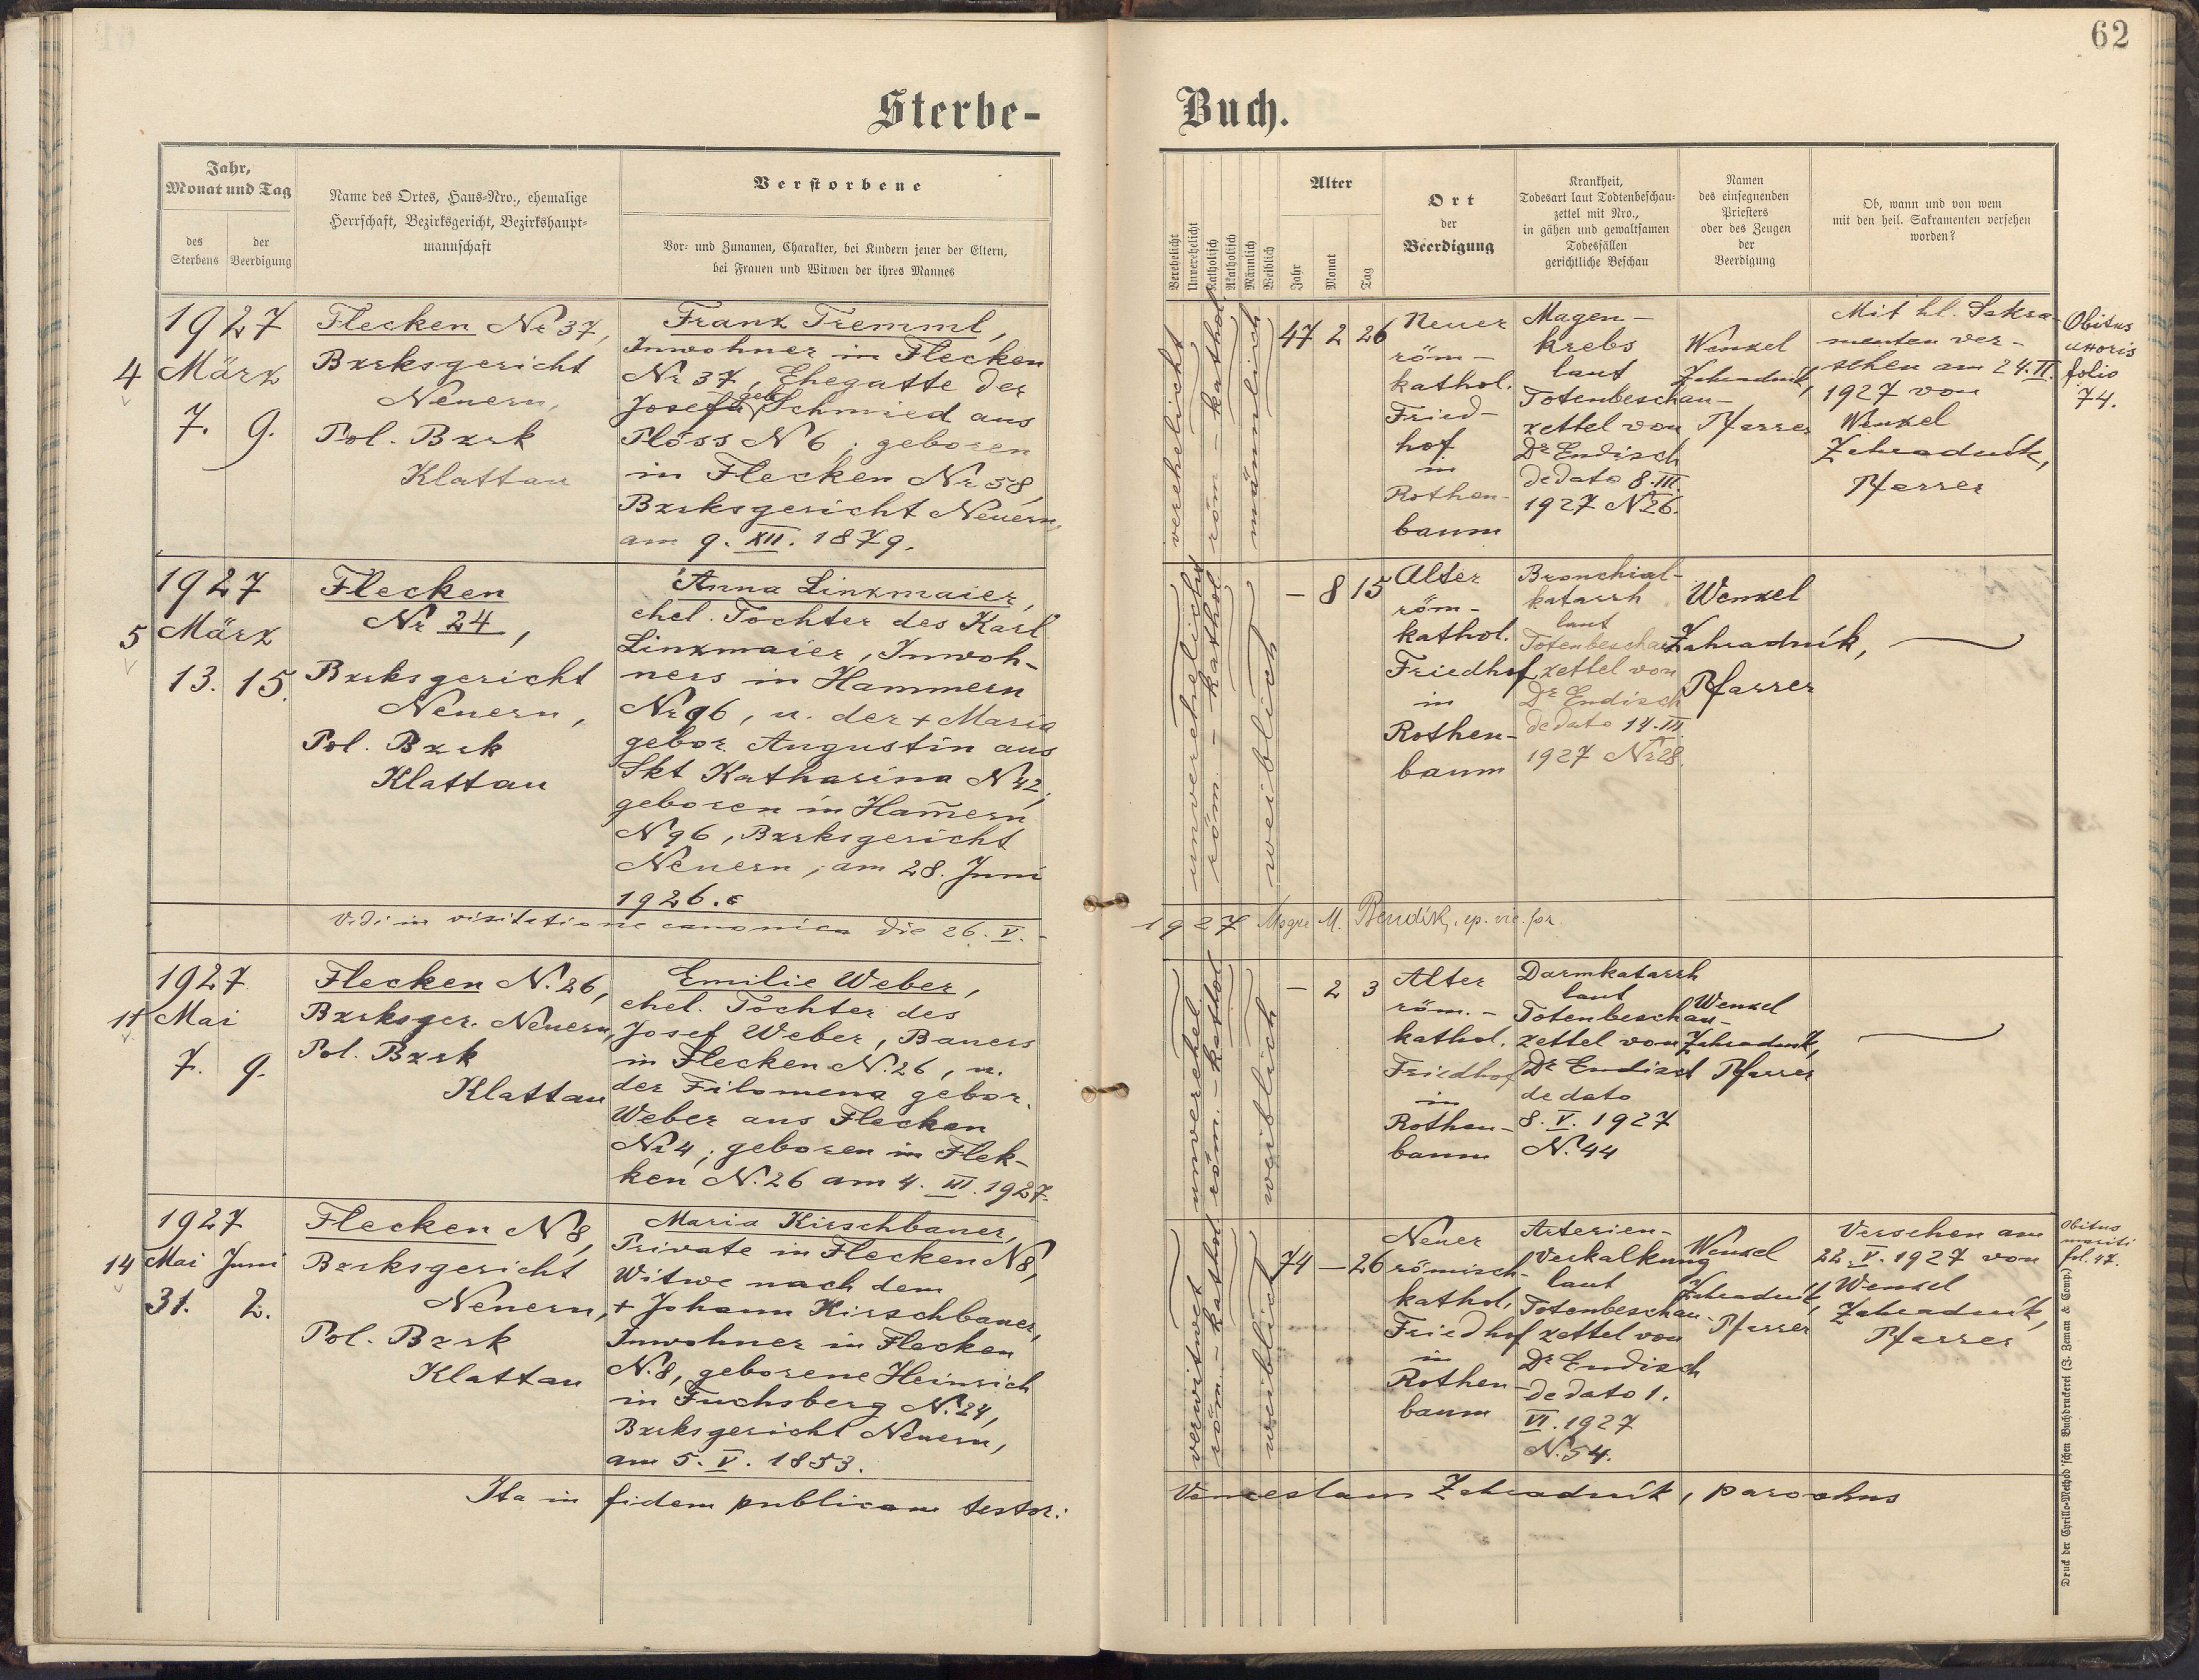 62
Sterbe-
Buch.
Jahr,
Monat und Tag
des
Sterbens
der
Beerdigung
Name des Ortes, Haus-Nro., ehemalige
Herrschaft, Bezirksgericht, Bezirkshaupt-
mannschaft
Verstorbene
Vor- und Zunamen, Charakter, bei Kindern jener der Eltern,
bei Frauen und Witwen der ihres Mannes
Verehelicht
Unverehelicht
Katholisch
Akatholisch
Männlich
Weiblich
Alter
Jahr
Monat
Tag
Ort
der
Beerdigung
Krankheit,
Todesart laut Todtenbeschau-
zettel mit Nro.,
in gähen und gewaltsamen
Todesfällen
gerichtliche Beschau
Namen
des einsegnenden
Priesters
oder des Zeugen
der
Beerdigung
Ob, wann und von wem
mit den heil. Sakramenten versehen
worden?
4
1927
März
7. 9.
Flecken Nr 37,
Bzrksgericht
Neuern,
Pol. Bzrk
Klattau
Franz Tremml,
Inwohner in Flecken
Nr 37, Ehegatte der
Josefa geb. Schmied aus
Plöss N 6; geboren
in Flecken Nr 58,
Bzrksgericht Neuern,
am 9. XII. 1879.
verehelicht
röm - kathol.
männlich
47 2 26
Neuer
röm-
kathol.
Fried-
hof
in
Rothen-
baum
Magen-
krebs
laut
Totenbeschau-
zettel von
Dr Endisch
de dato 8. III.
1927 N 26.
Wenzel
Zahradník,
Pfarrer
Mit hl. Sakra-
menten ver-
sehen am 24. II.
1927 von
Wenzel
Zahradník,
Pfarrer
Obitus
uxoris
folio
74.
5
1927
März
13. 15.
Flecken
Nr 24,
Bzrksgericht
Neuern,
Pol. Bzrk
Klattau
Anna Linzmaier,
ehel. Tochter des Karl
Linzmaier, Inwoh-
ners in Hammern
Nr 96, u. der + Maria
gebor. Augustin aus
Skt Katharina N 42;
geboren in Ham̄ern
N 96, Bzrksgericht
Neuern, am 28. Juni
1926.
unverehelicht
röm. - kathol
weiblich
- 8 15
Alter
röm-
kathol.
Friedhof
in
Rothen-
baum
Bronchial-
katarrh
laut
Totenbeschau
zettel von
Dr Endisch
de dato 14. III.
1927 Nr 28.
Wenzel
Zahradník,
Pfarrer
Vidi in visitatione canonica die 26. V.
1927 Msgre M. ep. vic. for.
11
1927
Mai
7. 9.
Flecken N. 26,
Bzrksger. Neuern,
Pol. Bzrk
Klattau
Emilie Weber,
ehel. Tochter des
Josef Weber, Bauers
in Flecken N. 26, u.
der Filomena gebor.
Weber aus Flecken
Nr 4; geboren in Flek-
ken N. 26 am 4. III. 1927.
unverehel
röm. - kathol
weiblich
- 2 3
Alter
röm.-
kathol.
Friedhof
in
Rothen-
baum
Darmkatarrh
laut
Totenbeschau-
zettel von
Dr Endisch
de dato
8. V. 1927
N. 44
Wenzel
Zahradník,
Pfarrer
14
1927
Mai Juni
31. 2.
Flecken N 8,
Bzrksgericht
Neuern,
Pol. Bzrk
Klattau
Maria Kirschbauer,
Private in Flecken N 8,
Witwe nach dem
+ Johann Kirschbauer,
Inwohner in Flecken
N. 8, geborene Heinrich
in Fuchsberg N. 24,
Bzrksgericht Neuern,
am 5. V. 1853.
verwitwet
röm. - kathol
weiblich
74 - 26
Neuer
römisch-
kathol.
Friedhof
in
Rothen-
baum
Arterien-
Verkalkung
laut
Totenbeschau-
zettel von
Dr Endisch
de dato 1.
VI. 1927
N. 54.
Wenzel
Zahradník,
Pfarrer
Versehen am
22. V. 1927 von
Wenzel
Zahradník,
Pfarrer
Obitus
mariti
fol. 47.
Ita in fidem publicam testor:
Venceslaus Zahradník, parochus
Druck der Cyrillo-Method'schen Buchdruckerei (J. Zeman & Comp.)